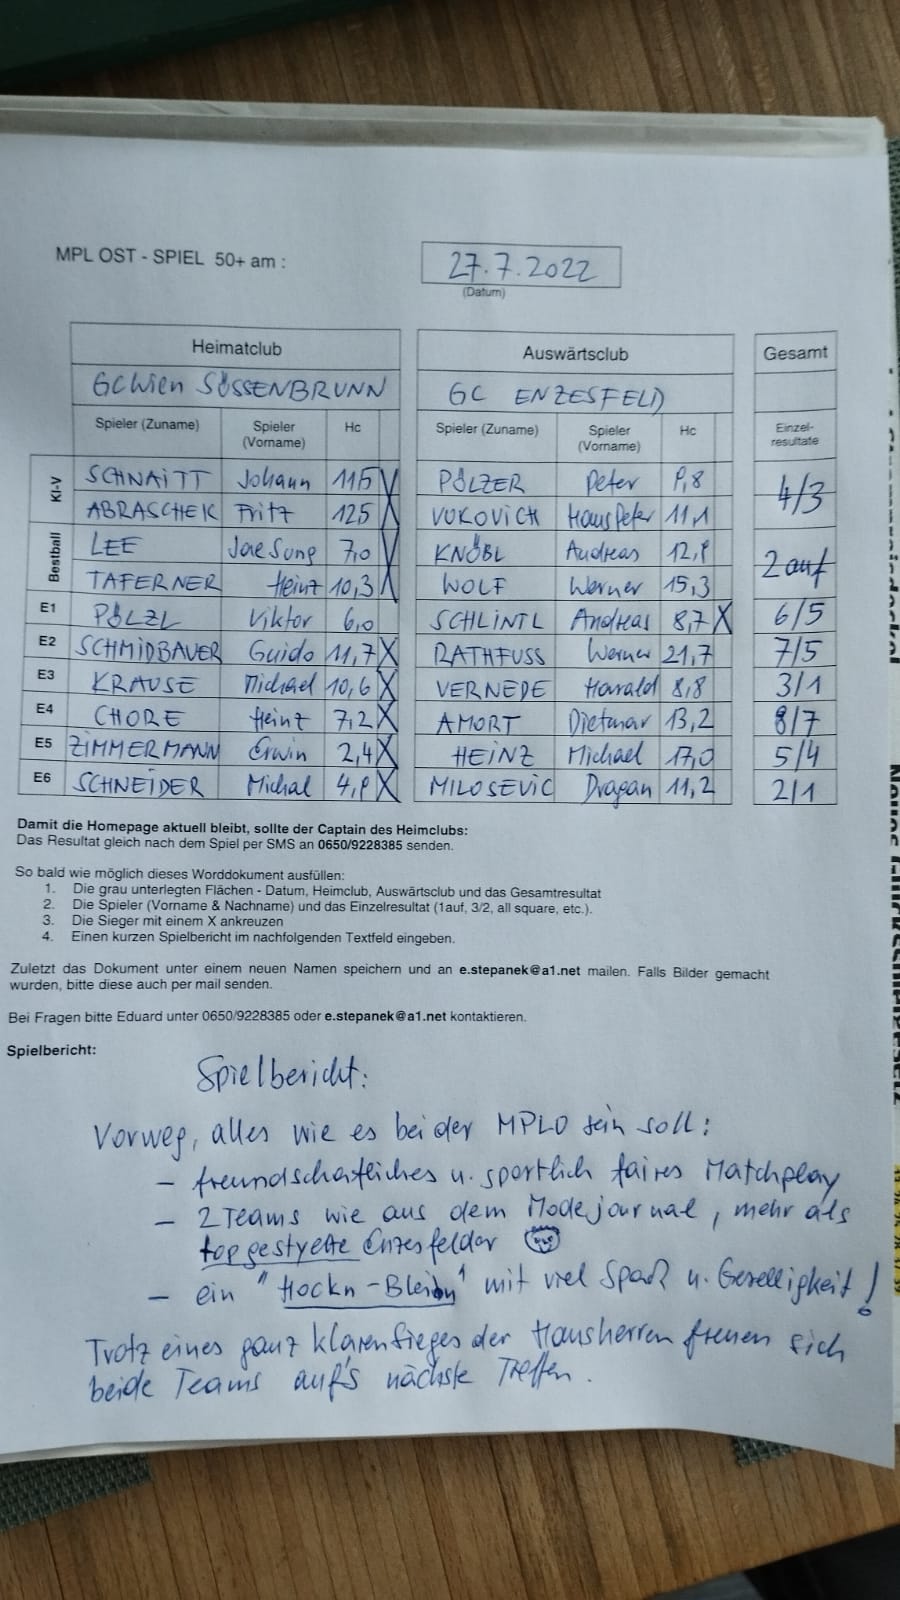 MPL OST - SPIEL 50+ am :
27.7.2022
(Datum)
Heimatclub
Auswärtsclub
Gesamt
GC Wien SÜSSENBRUNN
GC ENZESFELD
Spieler (Zuname) Spieler (Vorname) Hc
Spieler (Zuname) Spieler (Vorname) Hc
Einzel-resultate
KI-V
SCHNAITT Johann 11,5 X PÖLZER Peter 9,8 4/3
ABRASCHEK Fritz 12,5 VUKOVICH HansPeter 11,1
Bestball
LEE Jae Sung 7,0 X KNÖBL Andreas 12,9 2 auf
TAFERNER Heinz 10,3 WOLF Werner 15,3
E1 PÖLZL Viktor 6,0 SCHLINTL Andreas 8,7 X 6/5
E2 SCHMIDBAUER Guido 11,7 X RATHFUSS Werner 21,7 7/5
E3 KRAUSE Michael 10,6 X VERNEDE Harald 8,8 3/1
E4 CHORE Heinz 7,2 X AMORT Dietmar 13,2 8/7
E5 ZIMMERMANN Erwin 2,4 X HEINZ Michael 17,0 5/4
E6 SCHNEIDER Michal 4,9 X MILOSEVIC Dragan 11,2 2/1
Damit die Homepage aktuell bleibt, sollte der Captain des Heimclubs:
Das Resultat gleich nach dem Spiel per SMS an 0650/9228385 senden.
So bald wie möglich dieses Worddokument ausfüllen:
1. Die grau unterlegten Flächen - Datum, Heimclub, Auswärtsclub und das Gesamtresultat
2. Die Spieler (Vorname & Nachname) und das Einzelresultat (1auf, 3/2, all square, etc.).
3. Die Sieger mit einem X ankreuzen
4. Einen kurzen Spielbericht im nachfolgenden Textfeld eingeben.
Zuletzt das Dokument unter einem neuen Namen speichern und an e.stepanek@a1.net mailen. Falls Bilder gemacht
wurden, bitte diese auch per mail senden.
Bei Fragen bitte Eduard unter 0650/9228385 oder e.stepanek@a1.net kontaktieren.
Spielbericht:
Spielbericht:
Vorweg, alles wie es bei der MPLO sein soll:
- freundschaftliches u. sportlich faires Matchplay
- 2 Teams wie aus dem Modejournal, mehr als
topgestylte Enzesfelder
- ein "Hockn-Bleibn" mit viel Spaß u. Geselligkeit!
Trotz eines ganz klaren Sieges der Hausherren freuen sich
beide Teams auf's nächste Treffen.